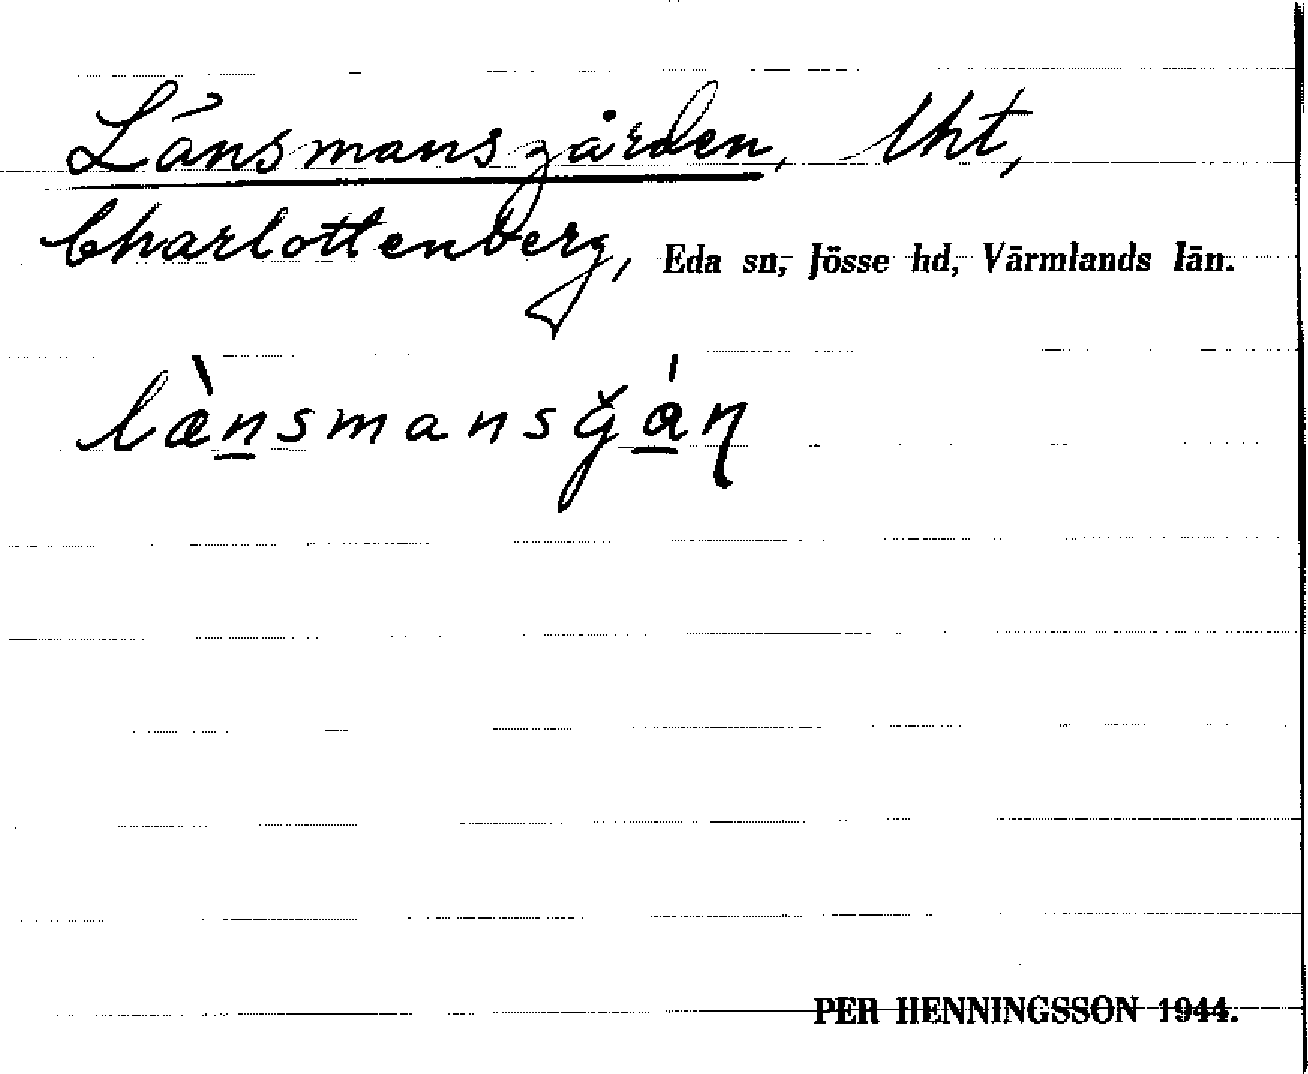 Länsmansgården, lht,
Charlottenberg, Eda sn, Jösse hd, Värmlands län.
læ̀n̲smansğá̲ɳ
PER HENNINGSSON 1944.